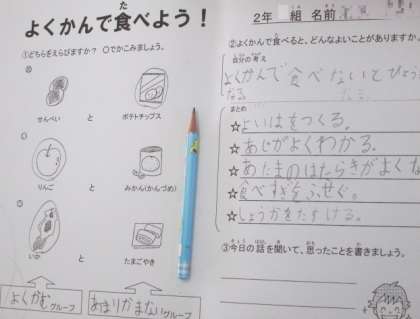 よくかんで食べよう！
2年 組 名前
①どちらをえらびますか？ ○でかこみましょう。
せんべい と ポテトチップス
りんご と みかん(かんづめ)
いか と たまごやき
よくかむグループ
あまりかまないグループ
②よくかんで食べると、どんなよいことがありますか。
自分の考え
よくかんで食べないとびょう
なる
まとめ
☆よいはをつくる。
☆あじがよくわかる。
☆あたまのはたらきがよくな
☆食べすぎをふせぐ。
☆しょうかをたすける。
③今日の話を聞いて、思ったことを書きましょう。